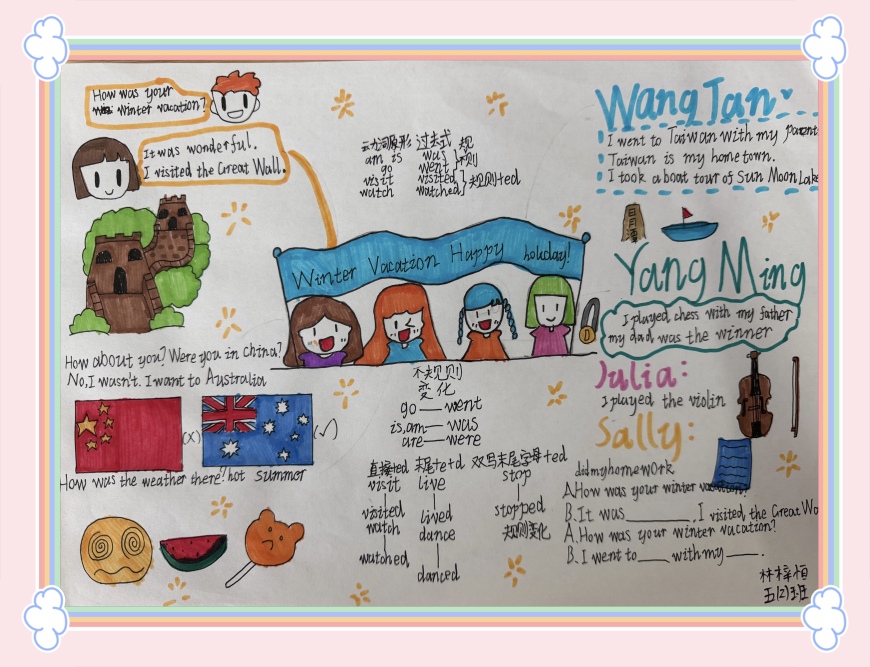 How was your
winter vacation?
It was wonderful.
I visited the Great Wall.
动词原形 过去式 规
am is was 则
go went
visit visited
watch watched 规则+ed
Wang Tan
I went to Taiwan with my parent
Taiwan is my hometown.
I took a boat tour of Sun Moon Lake
日月潭
Winter Vacation Happy holiday!
Yang Ming
I played chess with my father
my dad was the winner
How about you? Were you in china?
No, I wasn't. I want to Australia
(×)
(√)
How was the weather there? hot summer
不规则
变化
go——went
is,am——was
are——were
直接+ed 末尾+e+d 双写末尾字母+ed
visit live stop
visited lived stopped
watch dance 规则变化
watched danced
Julia:
I played the violin
Sally:
did my homework
A. How was your winter vacation?
B. It was______, I visited the Great Wa
A. How was your winter vacation?
B. I went to____with my____.
林梓恒
五(2)班